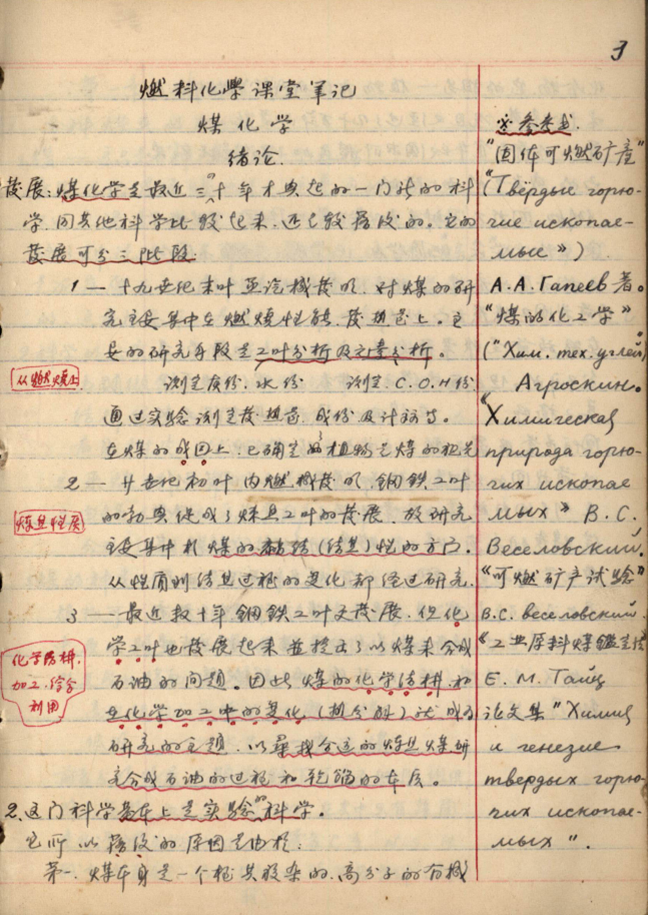 3
燃料化學课堂笔记
煤化学
绪论.
發展:煤化学是最近三四十年才兴起的一门新的科
学.同其他科学比较起来.还是较落後的。它的
發展可分三階段.
1— 十九世纪末叶蒸汽機發明.对煤的研
究主要集中在燃燒性能.發热量上。主
要的研究手段是工叶分析及元素分析。
从燃燒上
测定灰份.水份 测定C.O.H份
通过实验测定發热量.成份及计祘等.
在煤的成因上.已确定植物是煤的祖先
2— 廿世纪初叶内燃機發明.钢鉄工叶
的勃兴促成了煉焦工叶的發展.故研究
煉焦性质
主要集中於煤的黏结(结焦)性的方向.
从性质到结焦过程的变化都经过研究.
3—最近数十年钢鉄工叶大發展.但化
学工叶也發展起来並提出了以煤来合成
化学结构.
加工.综合
利用
石油的问题。因此煤的化学结構.和
在化学加工中的变化(热分解)就成为
研究的主题.以尋找合适的煉焦煤研
究合成石油的过程和乾馏的本质。
2.这门科学基本上是实验的科学.
它所以落後的原因是由於:
第一.煤本身是一个極其複杂的.高分子的有機
参考书.
"固体可燃矿産"
(Твёрдые горю-
чие ископае-
мые»)
А.А.Гапеев 著。
"煤的化工学"
("Хим. тех. углей"
Агроскин.
"Химическая
природа горю-
чих ископае
мых» В.С.
Веселовский.
"可燃矿产试验"
В.С. веселовский.
《工业原料煤鑑定法
Е.М. Тайц
论文集"Химия
и генезис
твердых горю-
чих ископае-
мых".